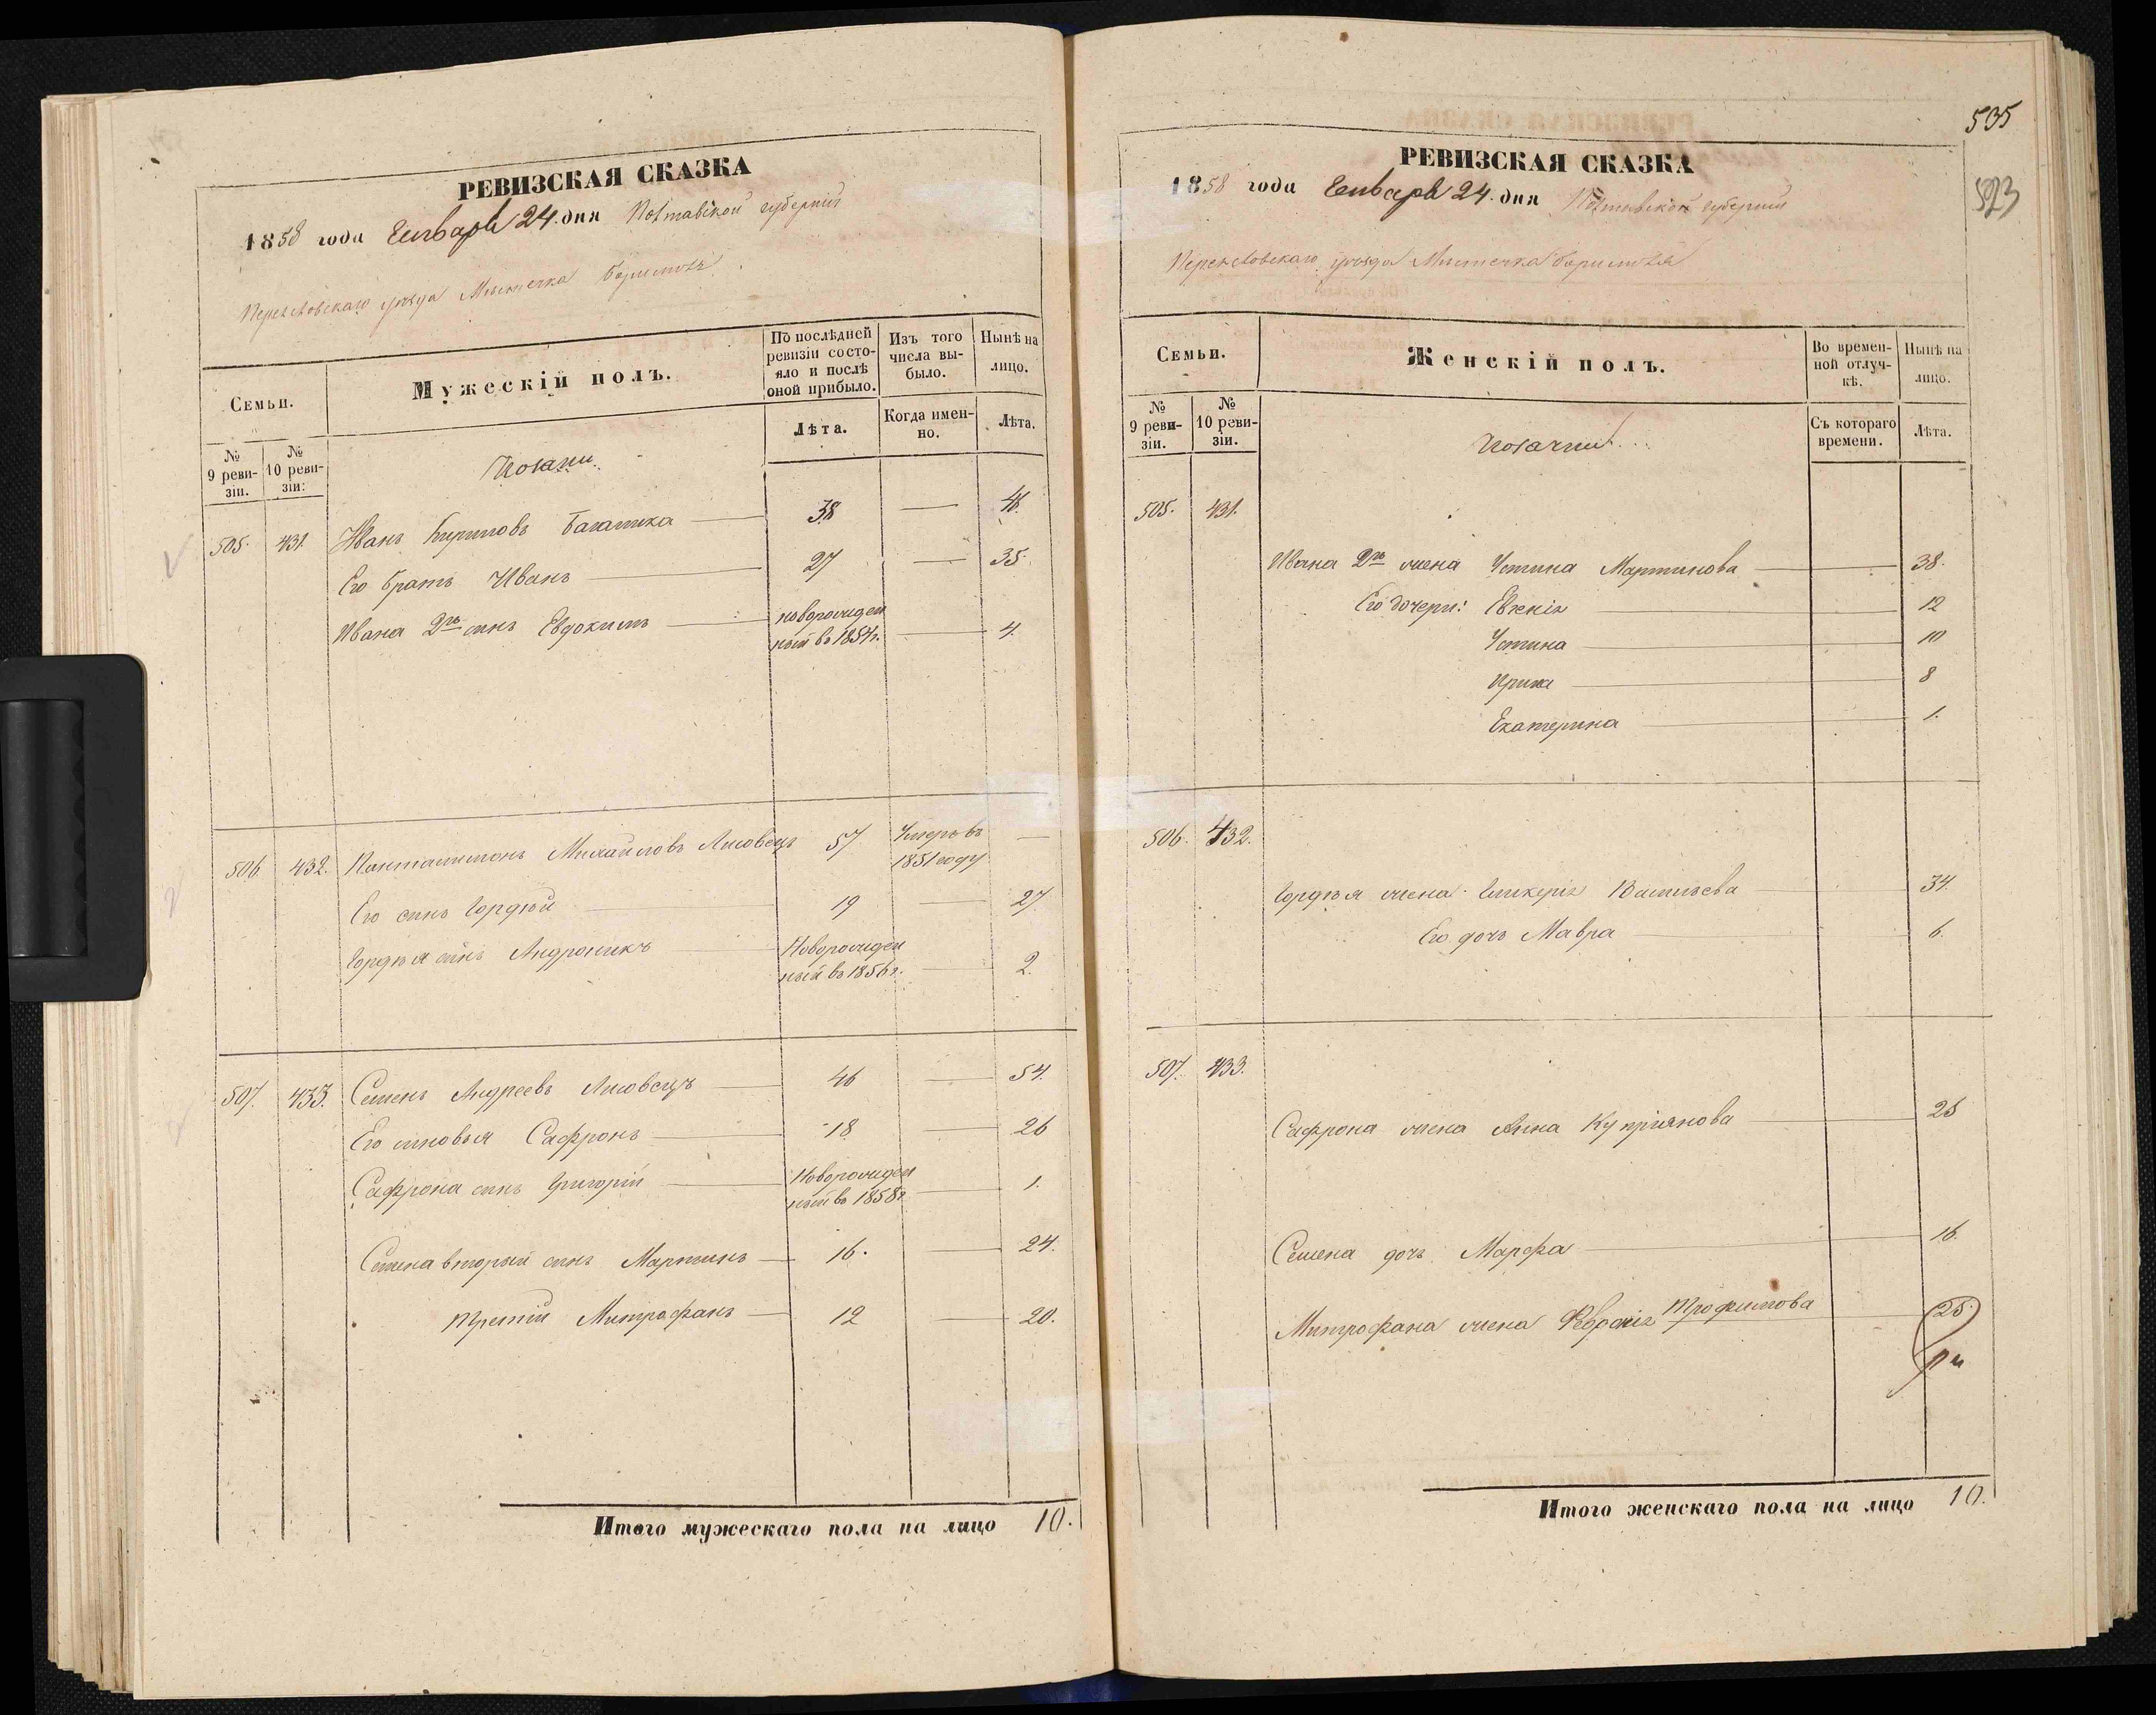 РЕВИЗСКАЯ СКАЗКА
1858 года Генваря 24 дня Полтавской губерніи
Переяславскаго уѣзда Мѣстечка Борисполя
Семьи.
Мужескій полъ.
По послѣдней ревизіи состояло и послѣ оной прибыло.
Изъ того числа выбыло.
Нынѣ на лицо.
№ 9 ревизіи.
№ 10 ревизіи.
Козаки
Лѣта.
Когда именно.
Лѣта.
505. 431. Иванъ Кириловъ 38 — 46.
Его братъ Иванъ 27 — 35.
Ивана 2го сынъ Евдокимъ новорожденный въ 1854 г. — 4.
506 432. Пантелимонъ Михайловъ Лисовецъ 57 Умеръ въ 1851 году —
Его сынъ Гордѣй 19 — 27
Гордѣя сынъ Андроникъ Новорожденный въ 1856 г. — 2.
507. 433. Семенъ Андреевъ Лисовецъ 46 — 54.
Его сыновья Сафронъ 18 — 26
Сафрона сынъ Григорій Новорожденный въ 1858 г. — 1.
Семена вторый сынъ Мартинъ 16. — 24.
третій Митрофанъ 12 — 20.
Итого мужескаго пола на лицо 10.
535
523
РЕВИЗСКАЯ СКАЗКА
1858 года Генваря 24 дня Полтавской губерніи
Переяславскаго уѣзда Мѣстечка Борисполя
Семьи.
Женскій полъ.
Во временной отлучкѣ.
Нынѣ на лицо.
№ 9 ревизіи.
№ 10 ревизіи.
Козачки
Съ котораго времени.
Лѣта.
505. 431.
Ивана 2го жена Устина Мартинова — 38.
Его дочери: Евгенія — 12
Устина — 10
Ирина — 8
Екатерина — 1.
506. 432.
Гордѣя жена Гликерія Васильева 34.
Его дочь Мавра — 6.
507. 433.
Сафрона жена Анна Купріянова — 25
Семена дочь Марфа — 16.
Митрофана жена Феврoнія Трофимова 25.
Итого женскаго пола на лицо 10.